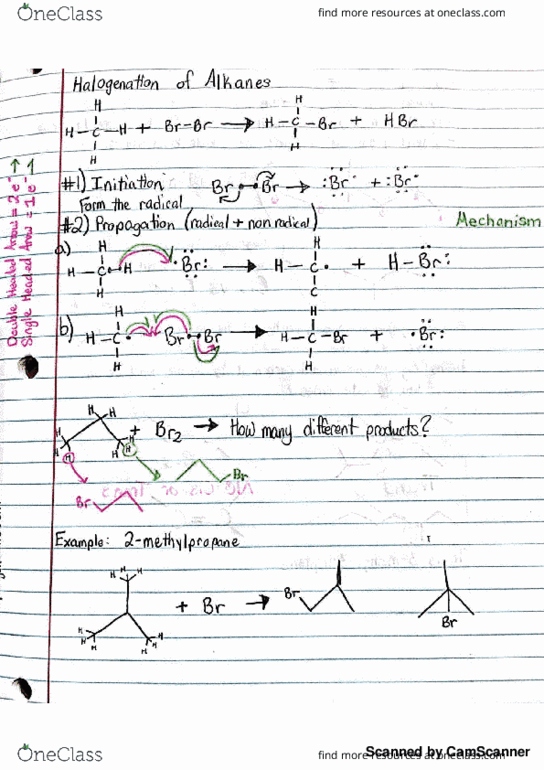 OneClass
find more resources at oneclass.com
Halogenation of Alkanes
H H
H-C-H + Br-Br → H-C-Br + HBr
H H
Double Headed Arrow = 2e⁻
Single Headed Arrow = 1e⁻
#1) Initiation Br Br → :Br· + :Br·
Form the radical
#2) Propagation (radical + non radical) Mechanism
a) H H
H-C H ·Br: → H-C· + H-Br:
H C
b) H H
H-C· Br Br → H-C-Br + ·Br:
H H
H H
H H + Br₂ → How many different products?
H H
Br
Br
Example: 2-methylpropane
H H H
+ Br → Br
H H H H
Br
OneClass
find more resources at oneclass.com
Scanned by CamScanner